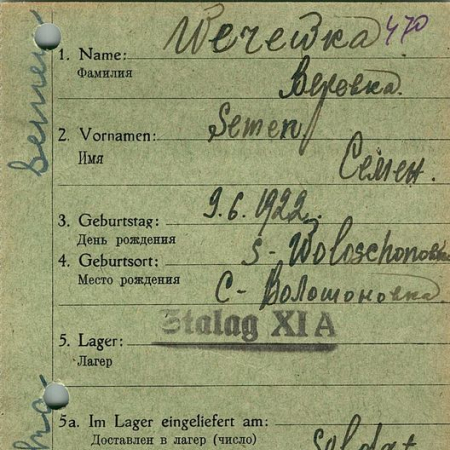 Werewka 470
1. Name:
Фамилия
Веревка.
2. Vornamen: Semen.
Имя
Семен.
3. Geburtstag: 9.6.1922.
День рождения
4. Geburtsort: s-Woloschonowka
Место рождения
С-Волошоновка.
Stalag XI A
5. Lager:
Лагер
5a. Im Lager eingeliefert am:
Доставлен в лагер (число)
Soldat